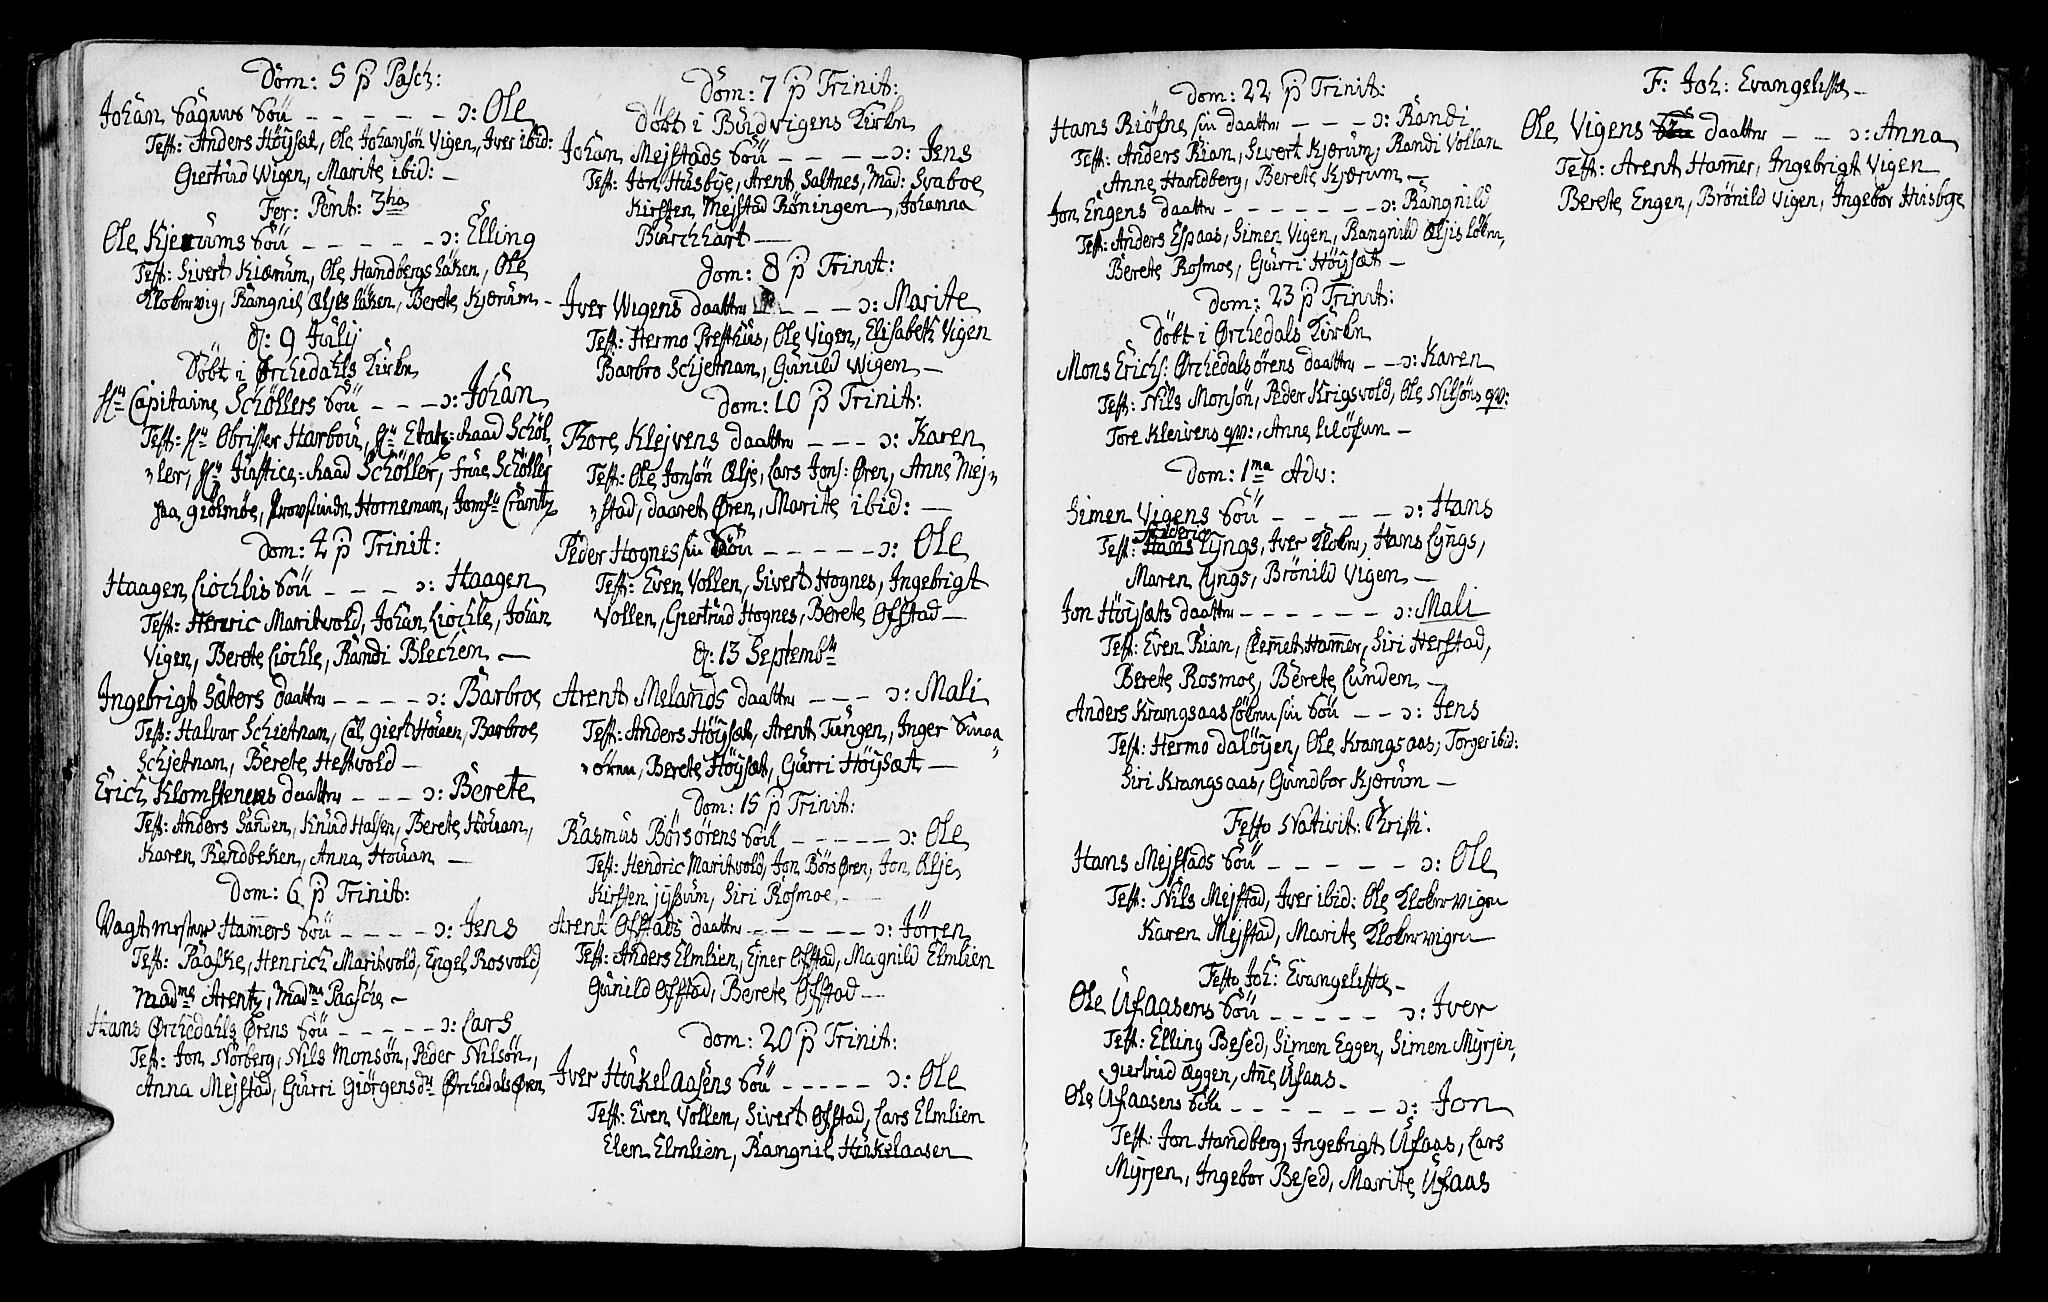 Dom: 5 p Pasch:
Johan Sagens Sön - - - - - ɔ: Ole
Test: Anders Höysæt, Ole Johansön Vigen, Iver ibid:
Giertrud Wigen, Marite ibid: -
Fer: Pent: 3tia
Ole Kjerums Sön - - - - - ɔ: Elling
Test: Sivert Kiærum, Ole Handbergs Löken, Ole
Klokervig, Rangnil Øljes Löken, Berete Kjærum -
d: 9 Julij
Döbt i Ørchedahls Kirke
Hr Capitaine Schöllers Sön - - - ɔ: Johan
Test: Hr Obrister Harbou, Hr Etatz-Raad Schöl
ler, Hr Justice-Raad Schöller, frue Schöller
paa Giölmöe, Provstinde Horneman, Jomfr Crantz
Dom: 4 p Trinit:
Haagen Liochlis Sön - - - - ɔ: Haagen
Test: Henric Maritvold, Johan Liochle, Johan
Vigen, Berete Liochle, Randi Blechem -
Ingebrigt Sæters daatter - - - - ɔ: Barbroe
Test: Halvar Schjetnam, Giert Houen, Barbroe
Schjetnam, Berete Hestvold -
Erich Klomstenens daatter - - - ɔ: Berete
Test: Anders Sanden, Knud Halsen, Berete Houam,
Karen Rendbeken, Anna Houan -
Dom: 6 p Trinit:
Vagtmester Ham̄ers Sön - - - - ɔ: Jens
Test: Paaske, Henrich Maritvold, Engel Rosvold,
Madme Arentz, Madme Paasche -
Hans Ørchedahls Ørens Sön - - - - - ɔ: Lars
Test: Jon Norberg, Nils Monsön, Peder Nilsön,
Anna Mejstad, Gurri Giörgensdr Ørchedals Ören
Dom: 7 p Trinit:
Döbt i Budvigens Kirke
Johan Mejstads Sön - - - - ɔ: Jens
Test: Jon Husbye, Arent Saltnes, Mad: Svaboe
Kirsten Mejstad Röningen, Johanna
Burchhart -
Dom: 8 p Trinit:
Iver Wigens daatter - - - ɔ: Marite
Test: Hermo Presthus, Ole Vigen, Elisabeth Vigen
Barbro Schjetnam, Gunild Wigen -
Dom: 10 p Trinit:
Tore Klejvens daatter - - - ɔ: Karen
Test: Ole Jonsön Ølje, Lars Jons: Ören, Anne Mej-
stad, daaret Ören, Marite ibid: -
Peder Hognes sin Sön - - - - - ɔ: Ole
Test: Even Vollen, Sivert Hognes, Ingebrigt
Vollen, Giertrud Hognes, Berete Ofstad -
d: 13 Septembr
Arent Melands daatter - - - ɔ: Mali
Test: Anders Höysæt, Arent Tungen, Inger Smaa
ören, Berete Höysæt, Gurri Höysæt -
Dom: 15 p Trinit:
Rasmus Börsörens Sön - - - - - ɔ: Ole
Test: Hendric Maritvold, Jon Börs Ören, Jon Ølje
Kirsten Jyssum, Siri Rosmoe, -
Arent Ofstads daatter - - - - - ɔ: Jörren
Test: Anders Elmlien, Ejner Ofstad, Magnild Elmlien
Gunild Ofstad, Berete Ofstad -
Dom: 20 p Trinit:
Iver Hinkelaasens Sön - - - - - ɔ: Ole
Test: Even Vollem, Sivert Ofstad, Lars Elmlien
Elen Elmlien, Rangnil Hinkelaasen
Dom: 22 p Trinit:
Hans Riösne sin daatter - - - ɔ: Randi
Test: Anders Rian, Sivert Kjærum, Randi Vollan
Anne Handberg, Berete Kjærum -
Jon Engens daatter - - - - - - - ɔ: Rangnild
Test: Anders Espaas, Simen Vigen, Rangnild Øljis löken,
Berete Rosmoe, Gurri Höysæt -
Dom: 23 p Trinit:
Döbt i Ørchedals Kirke
Mons Erichs: Ørchedalsörens daatter - - ɔ: Karen
Test: Nils Monsön, Peder Krigsvold, Ole Nilsöns qv:
Tore Kleivens qv:, Anne
Dom: 1ma Adv:
Simen Vigens Sön - - - - - ɔ: Hans
Frideric
Test: Hans Lyngs, Iver Kloker, Hans Lyngs,
Maren Lyngs, Brönild Vigen -
Jon Höysæts daatter - - - - - - ɔ: Mali
Test: Even Rian, Clem̄et Ham̄er, Siri Herstad,
Berete Rosmoe, Berete Lundem -
Anders Krangsaas Löken sin Sön - - ɔ: Jens
Test: Hermo Dalöyen, Ole Krangsaas, Torger ibid:
Siri Krangsaas, Gundbor Kjærum -
Festo Nativit: Christi:
Hans Mejstads Sön - - - - - - ɔ: Ole
Test: Nils Mejstad, Iver ibid: Ole Klokervigen
Karen Mejstad, Marite Klokervigen
Festo Joh: Evangelistæ -
Ole Usaasens Sön - - - - - ɔ: Iver
Test: Elling Besed, Simon Eggen, Simen Myrsen,
Giertrud Eggen, An̄e Usaas -
Ole Usaasens Sön - - - - - - ɔ: Jon
Test: Jon Handberg, Ingebrigt Usaas, Lars
Myrsen, Ingebor Besed, Marite Usaas
F: Joh: Evangelistæ -
Ole Vigens Sön daatter - - ɔ: Anna
Test: Arent Ham̄er, Ingebrigt Vigen
Berete Engen, Brönild Vigen, Ingebor Husbye